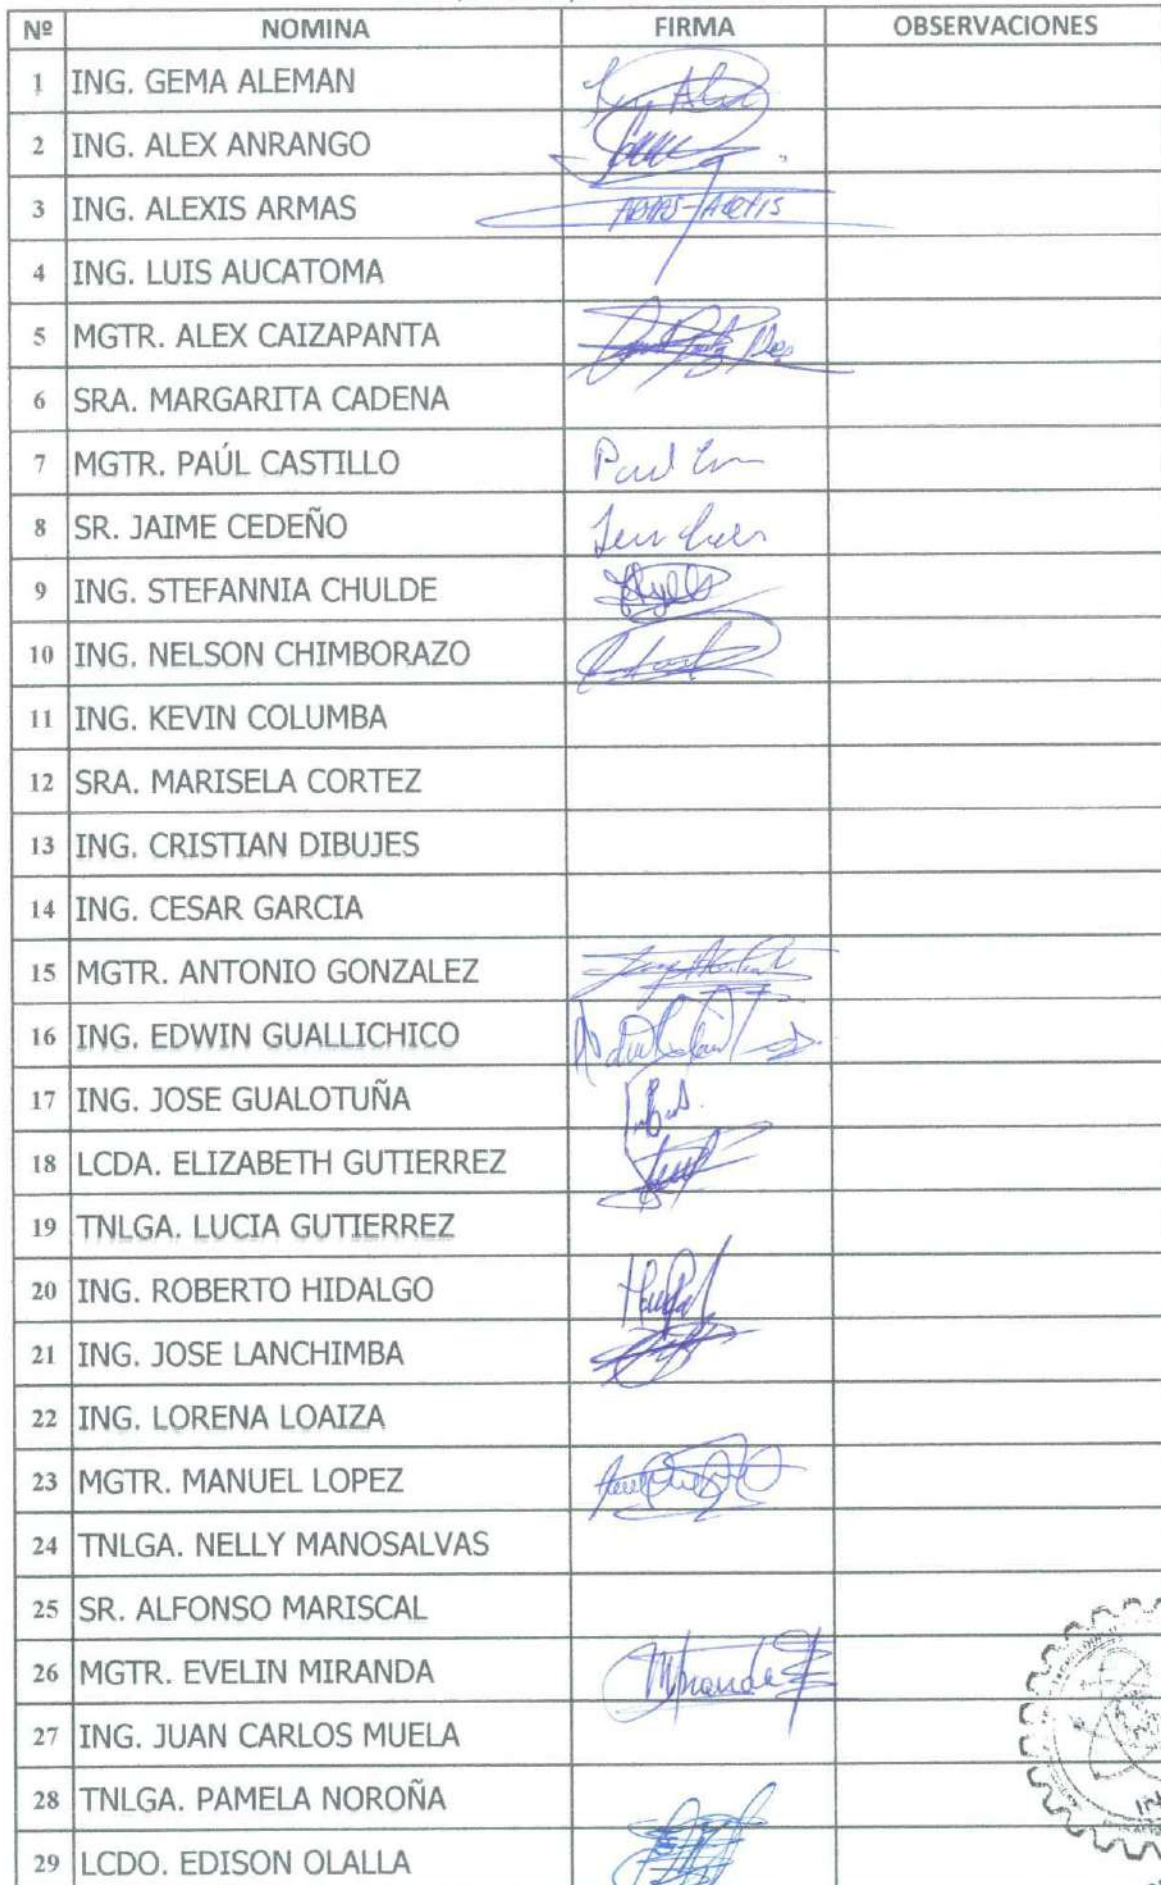 Nº NOMINA FIRMA OBSERVACIONES
1 ING. GEMA ALEMAN
2 ING. ALEX ANRANGO
3 ING. ALEXIS ARMAS
4 ING. LUIS AUCATOMA
5 MGTR. ALEX CAIZAPANTA
6 SRA. MARGARITA CADENA
7 MGTR. PAÚL CASTILLO Paul
8 SR. JAIME CEDEÑO
9 ING. STEFANNIA CHULDE
10 ING. NELSON CHIMBORAZO
11 ING. KEVIN COLUMBA
12 SRA. MARISELA CORTEZ
13 ING. CRISTIAN DIBUJES
14 ING. CESAR GARCIA
15 MGTR. ANTONIO GONZALEZ
16 ING. EDWIN GUALLICHICO
17 ING. JOSE GUALOTUÑA
18 LCDA. ELIZABETH GUTIERREZ
19 TNLGA. LUCIA GUTIERREZ
20 ING. ROBERTO HIDALGO
21 ING. JOSE LANCHIMBA
22 ING. LORENA LOAIZA
23 MGTR. MANUEL LOPEZ
24 TNLGA. NELLY MANOSALVAS
25 SR. ALFONSO MARISCAL
26 MGTR. EVELIN MIRANDA
27 ING. JUAN CARLOS MUELA
28 TNLGA. PAMELA NOROÑA
29 LCDO. EDISON OLALLA